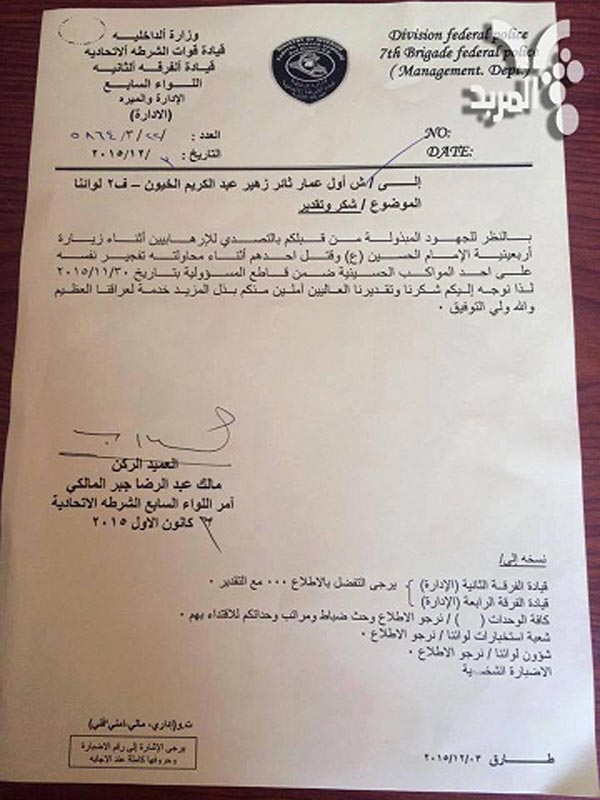 وزارة ألداخليه
قيادة قوات الشرطه ألاتحاديه
قيادة ألفرقه ألثانيه
اللواء السابع
الإدارة والميره
(الادارة)
العدد : ٥٨٦٤/٣/٢٢
التاريخ : /٢٠١٥/١٢
Division federal police
7th Brigade federal police
( Management. Dept.)
NO:
DATE:
المربد
إلـــى / ش أول عمار ثائر زهير عبد الكريم الخيون – ف٢ لوائنا
الموضوع / شكر وتقدير
بالنظر للجهود المبذولة من قبلكم بالتصدي للإرهابيين أثناء زيارة
أربعينية الإمام الحسين (ع) وقتل احدهم أثناء محاولته تفجير نفسه
على احد المواكب الحسينية ضمن قاطع المسؤولية بتاريخ ٢٠١٥/١١/٣٠
لذا نوجه إليكم شكرنا وتقديرنا العاليين آملين منكم بذل المزيد خدمة لعراقنا العظيم
والله ولي التوفيق ٠
العميد الركن
مالك عبد الرضا جبر المالكي
آمر اللواء السابع الشرطه الاتحادية
كانون الاول ٢٠١٥
نسخه إلى/
قيادة الفرقة الثانية (الإدارة) } يرجى التفضل بالاطلاع ٠٠٠ مع التقدير ٠
قيادة الفرقة الرابعة (الإدارة)
كافة الوحدات ( ) / نرجو الاطلاع وحث ضباط ومراتب وحداتكم للاقتداء بهم ٠
شعبة استخبارات لوائنا / نرجو الاطلاع ٠
شؤون لوائنا / نرجو الاطلاع ٠
الاضبارة الشخصية
ت.و(إداري، مالي،امني،فني)
يرجى الإشارة إلى رقم الاضبارة
وحروفها كاملة عند الاجابه
طـــارق ٢٠١٥/١٢/٠٣